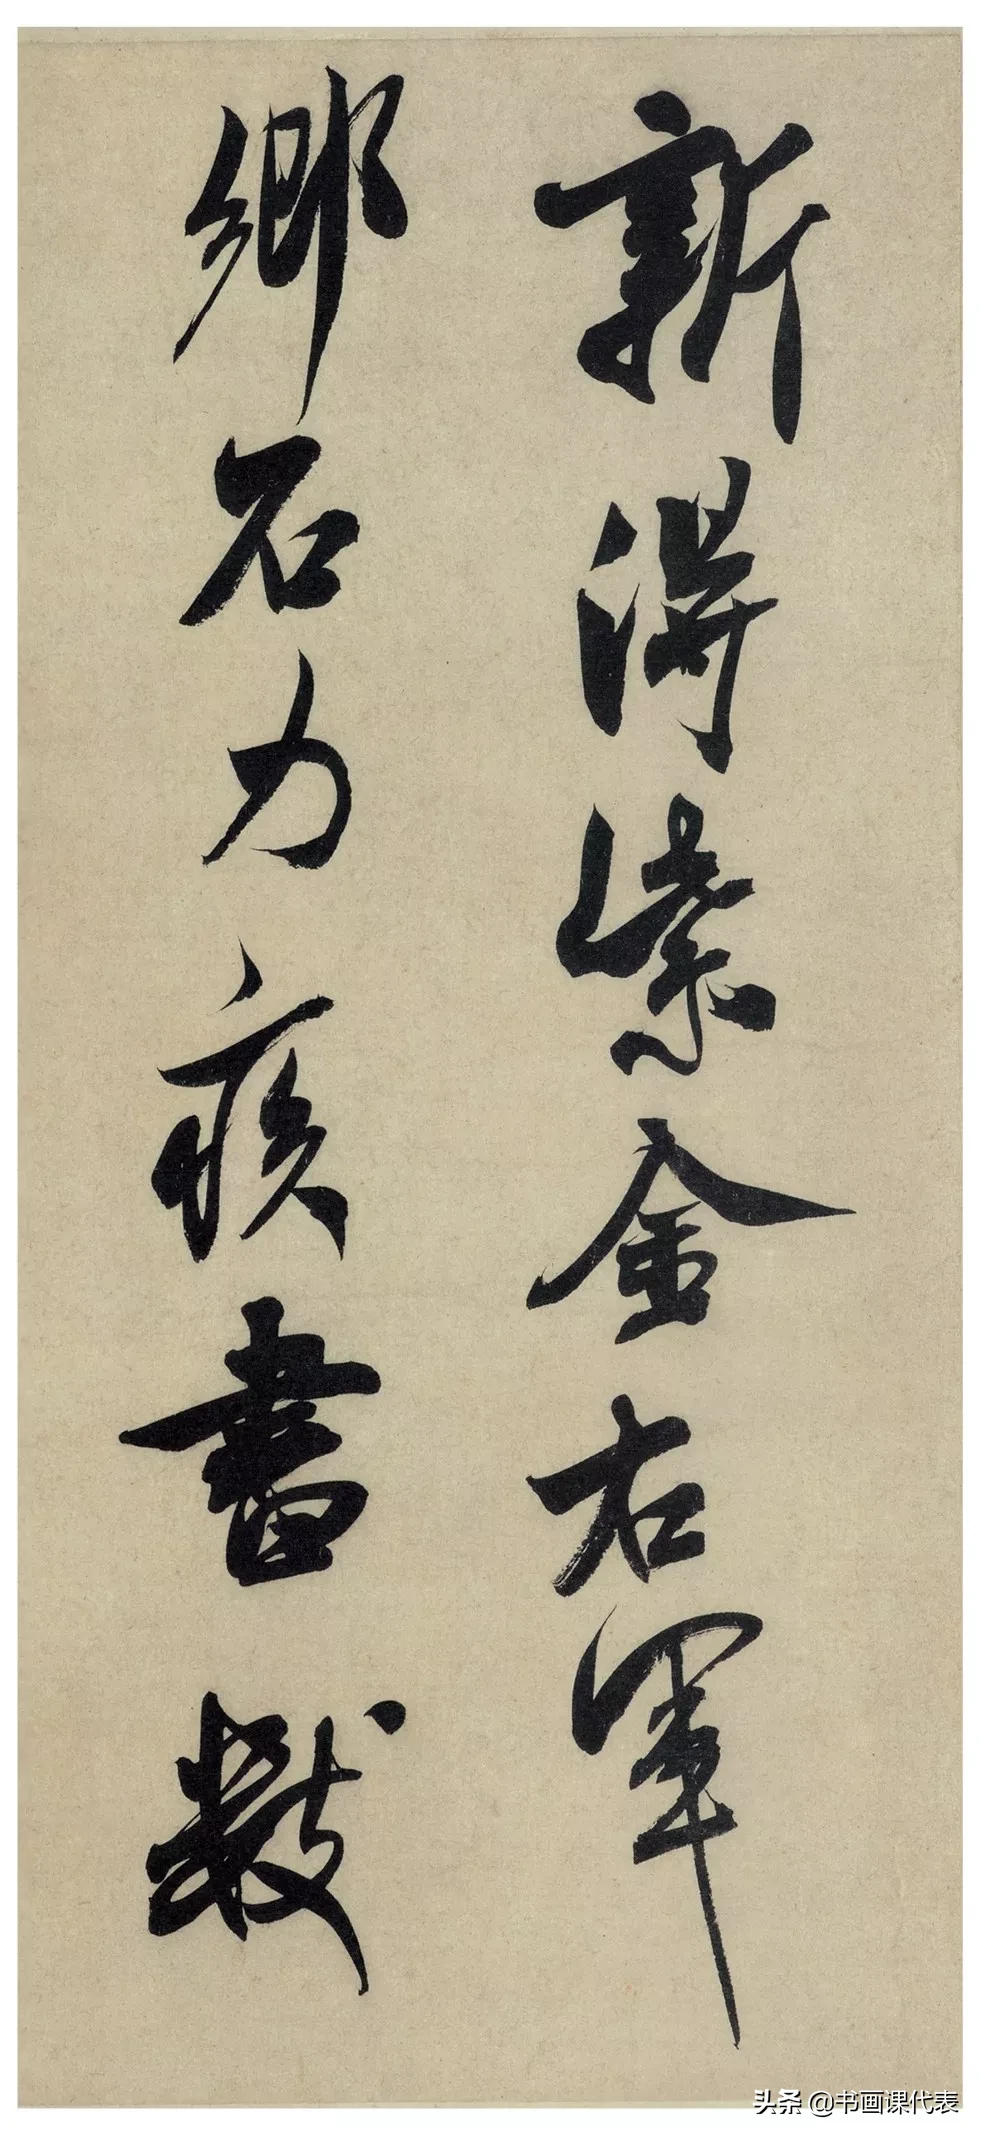 新得紫金右軍
鄉石力疾書數
头条 @书画课代表